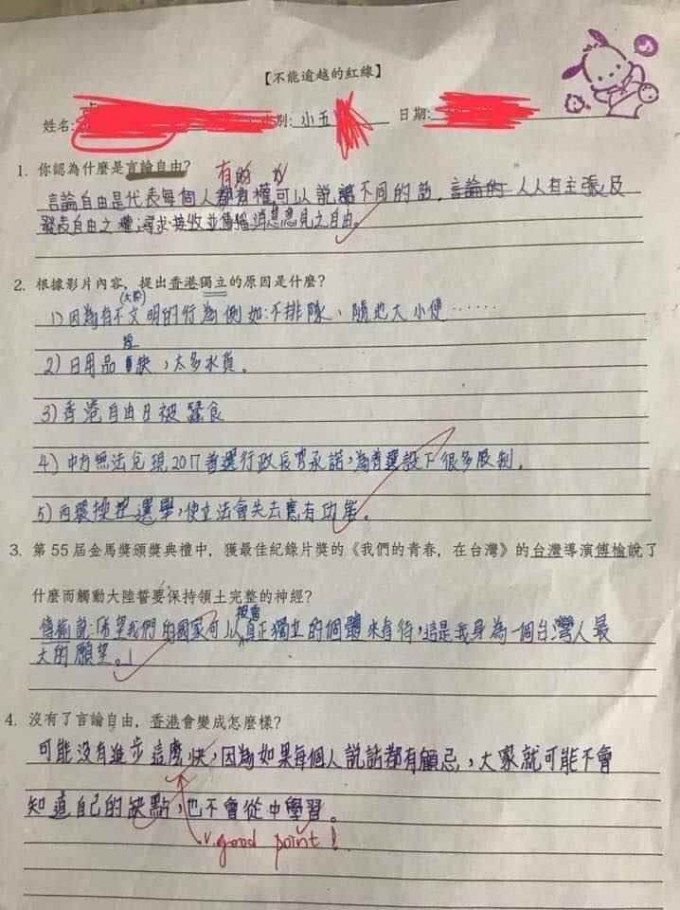 【不能逾越的紅線】
姓名: 別: 小五 日期:
1. 你認為什麼是言論自由?
有的
言論自由是代表每個人都有權可以說不同的話，言論的 人人有主張及
發表自由之權;尋求、接收並傳播消息意見之自由。
2. 根據影片內容，提出香港獨立的原因是什麼?
(大陸)
1)因為有不文明的行為例如:不排隊、隨地大小便……
2)日用品 缺，太多水貨。
3)香港自由日被蠶食
4)中方無法兌現2017普選行政長官承諾，為普選設下很多限制。
5)西環操控選舉，使立法會失去應有功能。
3. 第 55 屆金馬獎頒獎典禮中，獲最佳紀錄片獎的《我們的青春，在台灣》的台灣導演傅榆說了
什麼而觸動大陸誓要保持領土完整的神經?
被當
傅榆說:「希望我們的國家可以真正獨立的個體來看待，這是我身為一個台灣人最
大的願望。」
4. 沒有了言論自由，香港會變成怎麼樣?
可能沒有進步這麼快，因為如果每個人說話都有顧忌，大家就可能不會
知道自己的缺點，也不會從中學習。
v. good point!